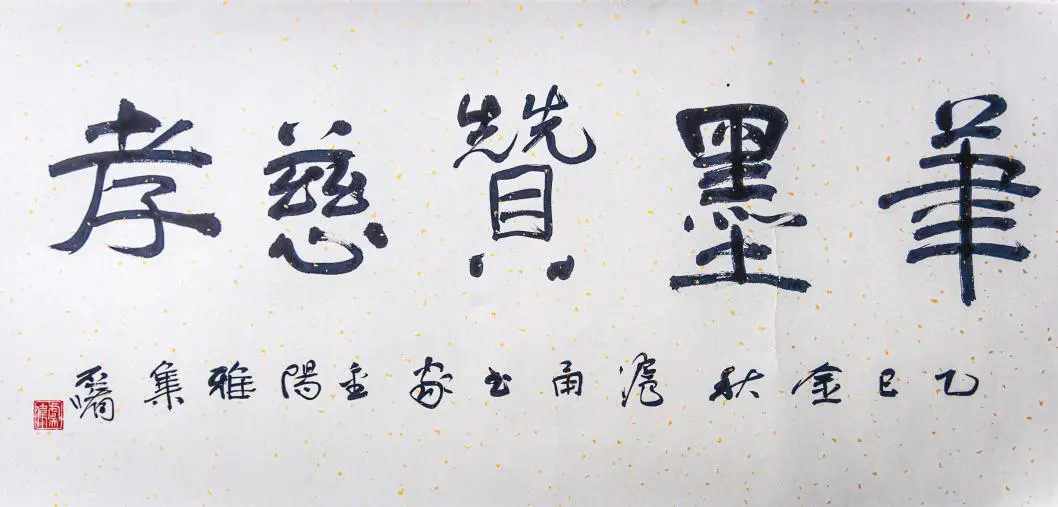 筆墨贊慈孝
乙巳金秋滬甬書家重陽雅集